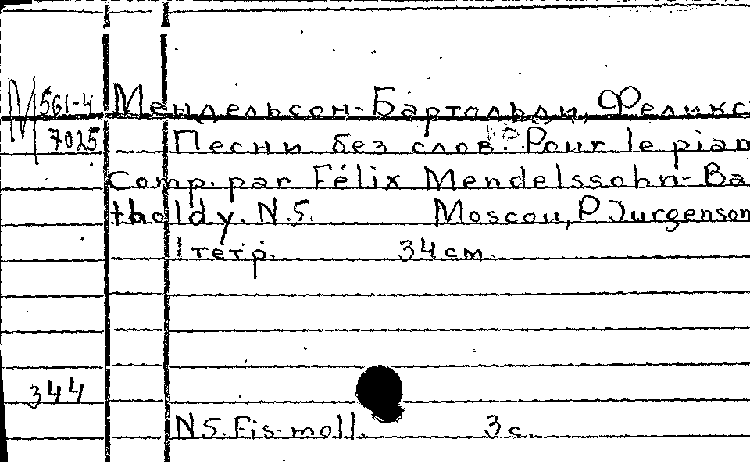 М 561-4 Мендельсон-Бартольди, Феликс
7025 Песни без слов. Pour le pian
Comp. par Félix Mendelssohn-Ba
tholdy. N.5. Moscou, P. Jurgenson
1 тетр. 34 см.
344
N5. Fis-moll. 3 с.